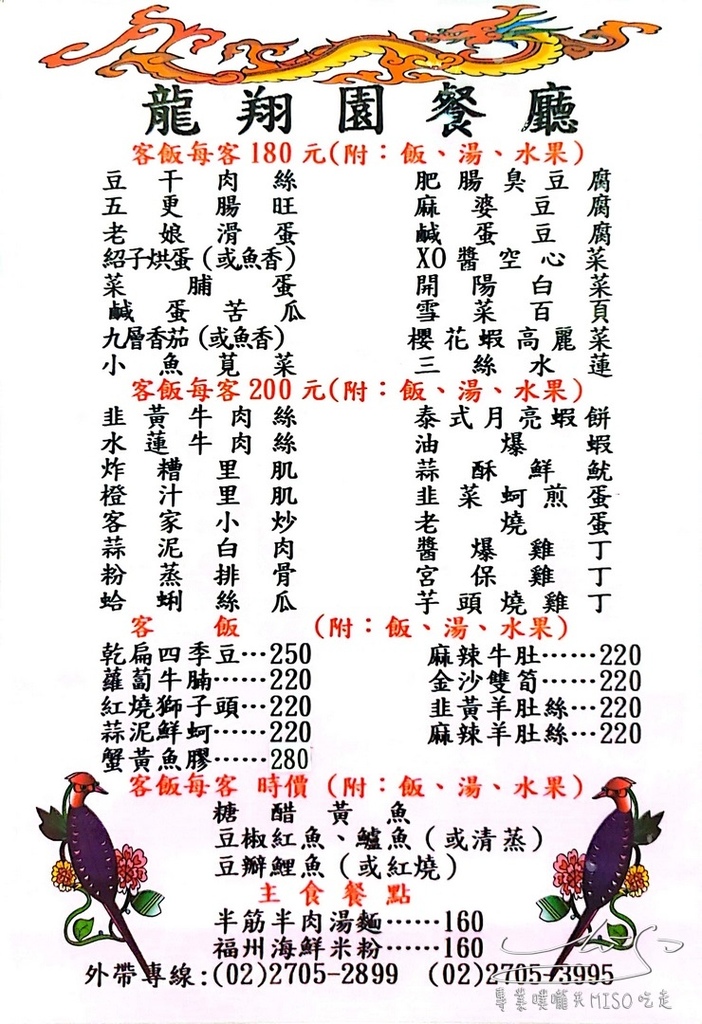 龍翔園餐廳
客飯每客180元(附：飯、湯、水果)
豆干肉絲 肥腸臭豆腐
五更腸旺 麻婆豆腐
老娘滑蛋 鹹蛋豆腐
紹子烘蛋(或魚香) XO醬空心菜
菜脯蛋 開陽白菜
鹹蛋苦瓜 雪菜百頁
九層香茄(或魚香) 櫻花蝦高麗菜
小魚莧菜 三絲水蓮
客飯每客200元(附：飯、湯、水果)
韭黃牛肉絲 泰式月亮蝦餅
水蓮牛肉絲 油爆蝦
炸糟里肌 蒜酥鮮魷
橙汁里肌 韭菜蚵煎蛋
客家小炒 老燒蛋
蒜泥白肉 醬爆雞丁
粉蒸排骨 宮保雞丁
蛤蜊絲瓜 芋頭燒雞丁
客飯 (附：飯、湯、水果)
乾扁四季豆…250 麻辣牛肚……220
蘿蔔牛腩……220 金沙雙筍……220
紅燒獅子頭…220 韭黃羊肚絲…220
蒜泥鮮蚵……220 麻辣羊肚絲…220
蟹黃魚膠……280
客飯每客 時價 (附：飯、湯、水果)
糖醋黃魚
豆椒紅魚、鱸魚(或清蒸)
豆瓣鯉魚(或紅燒)
主食餐點
半筋半肉湯麵……160
福州海鮮米粉……160
外帶專線:(02)2705-2899 (02)2705-3995
MISO
專業噗嚨共MISO吃走